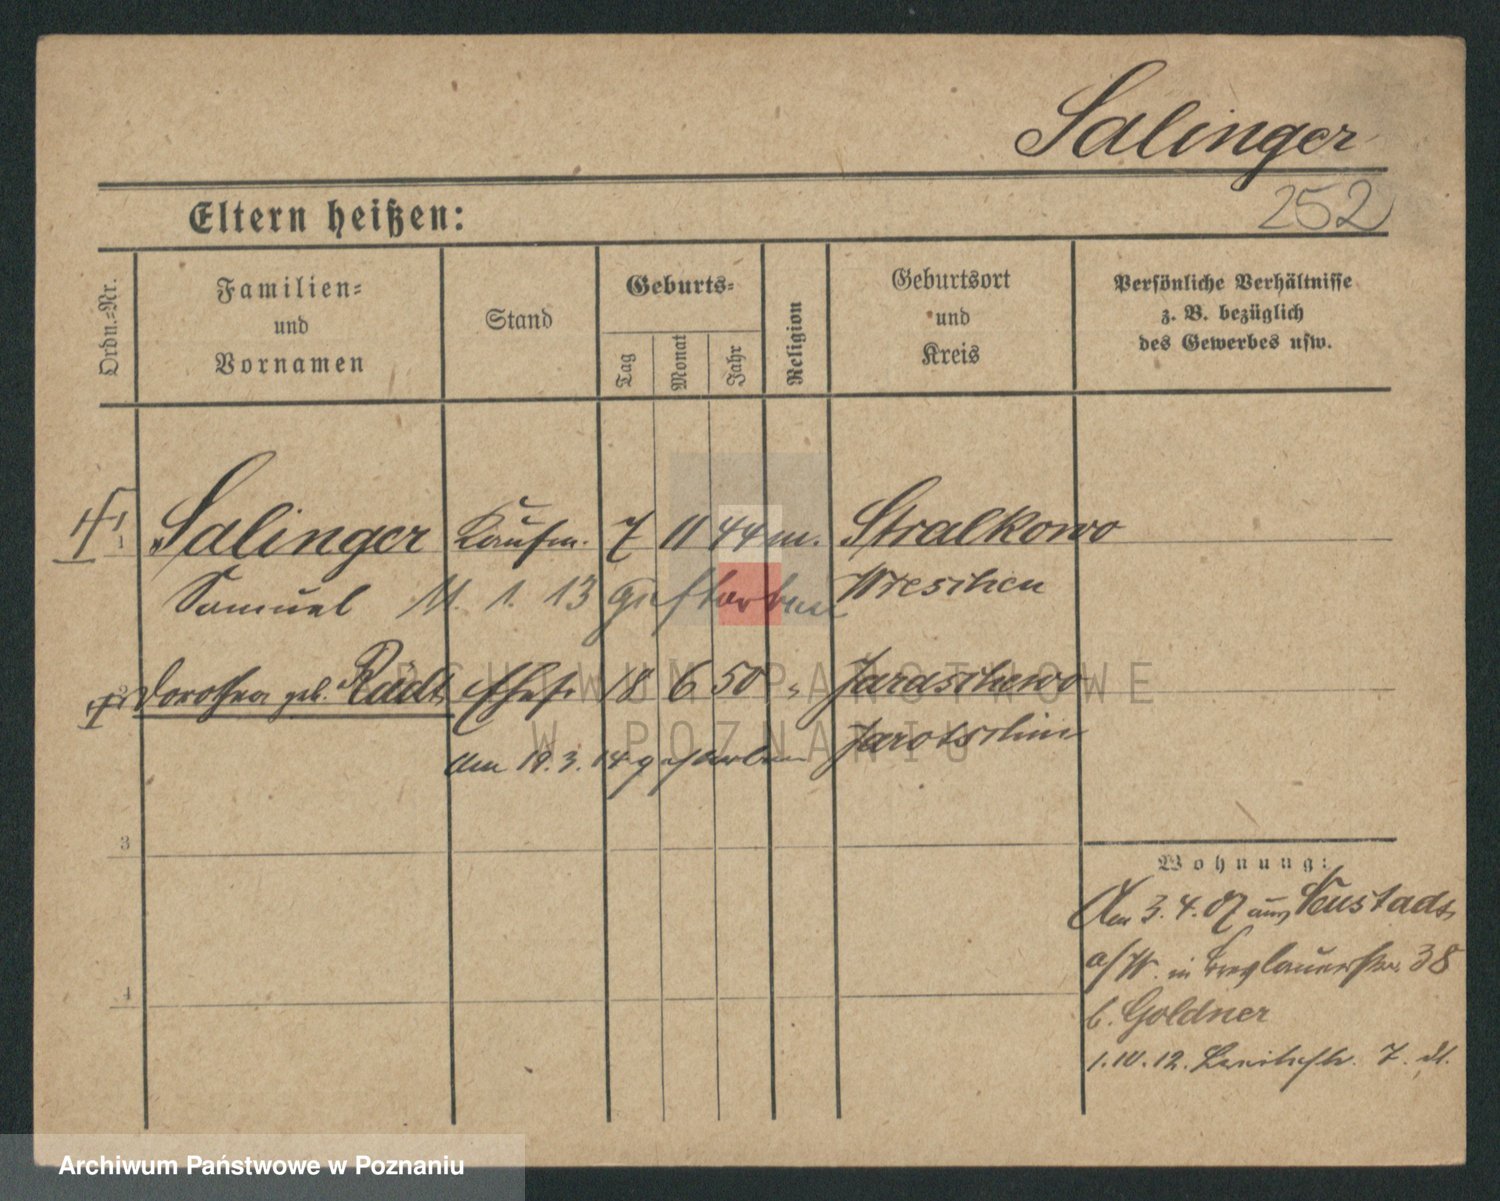 Salinger
252
Eltern heißen:
Ordn.-Nr.
Familien- und Vornamen
Stand
Geburts-
Tag
Monat
Jahr
Religion
Geburtsort und Kreis
Persönliche Verhältnisse z. B. bezüglich des Gewerbes usw.
1 Salinger Kaufm. 7 11 44 m. Stralkowo
Samuel 11. 1. 13 gestorben Wreschen
2 Dorothea geb. Rädt Ehefr. 18 6 50 " Jaraschewo
Jarotschin
am 19. 3. 14 gestorben
3
4
Wohnung:
Am 3. 4. 07 aus Neustadt
a/W. in Breslauerstr. 38
b. Goldner
1. 10. 12. Breitestr. 7.
ARCHIWUM PAŃSTWOWE
W POZNANIU
Archiwum Państwowe w Poznaniu